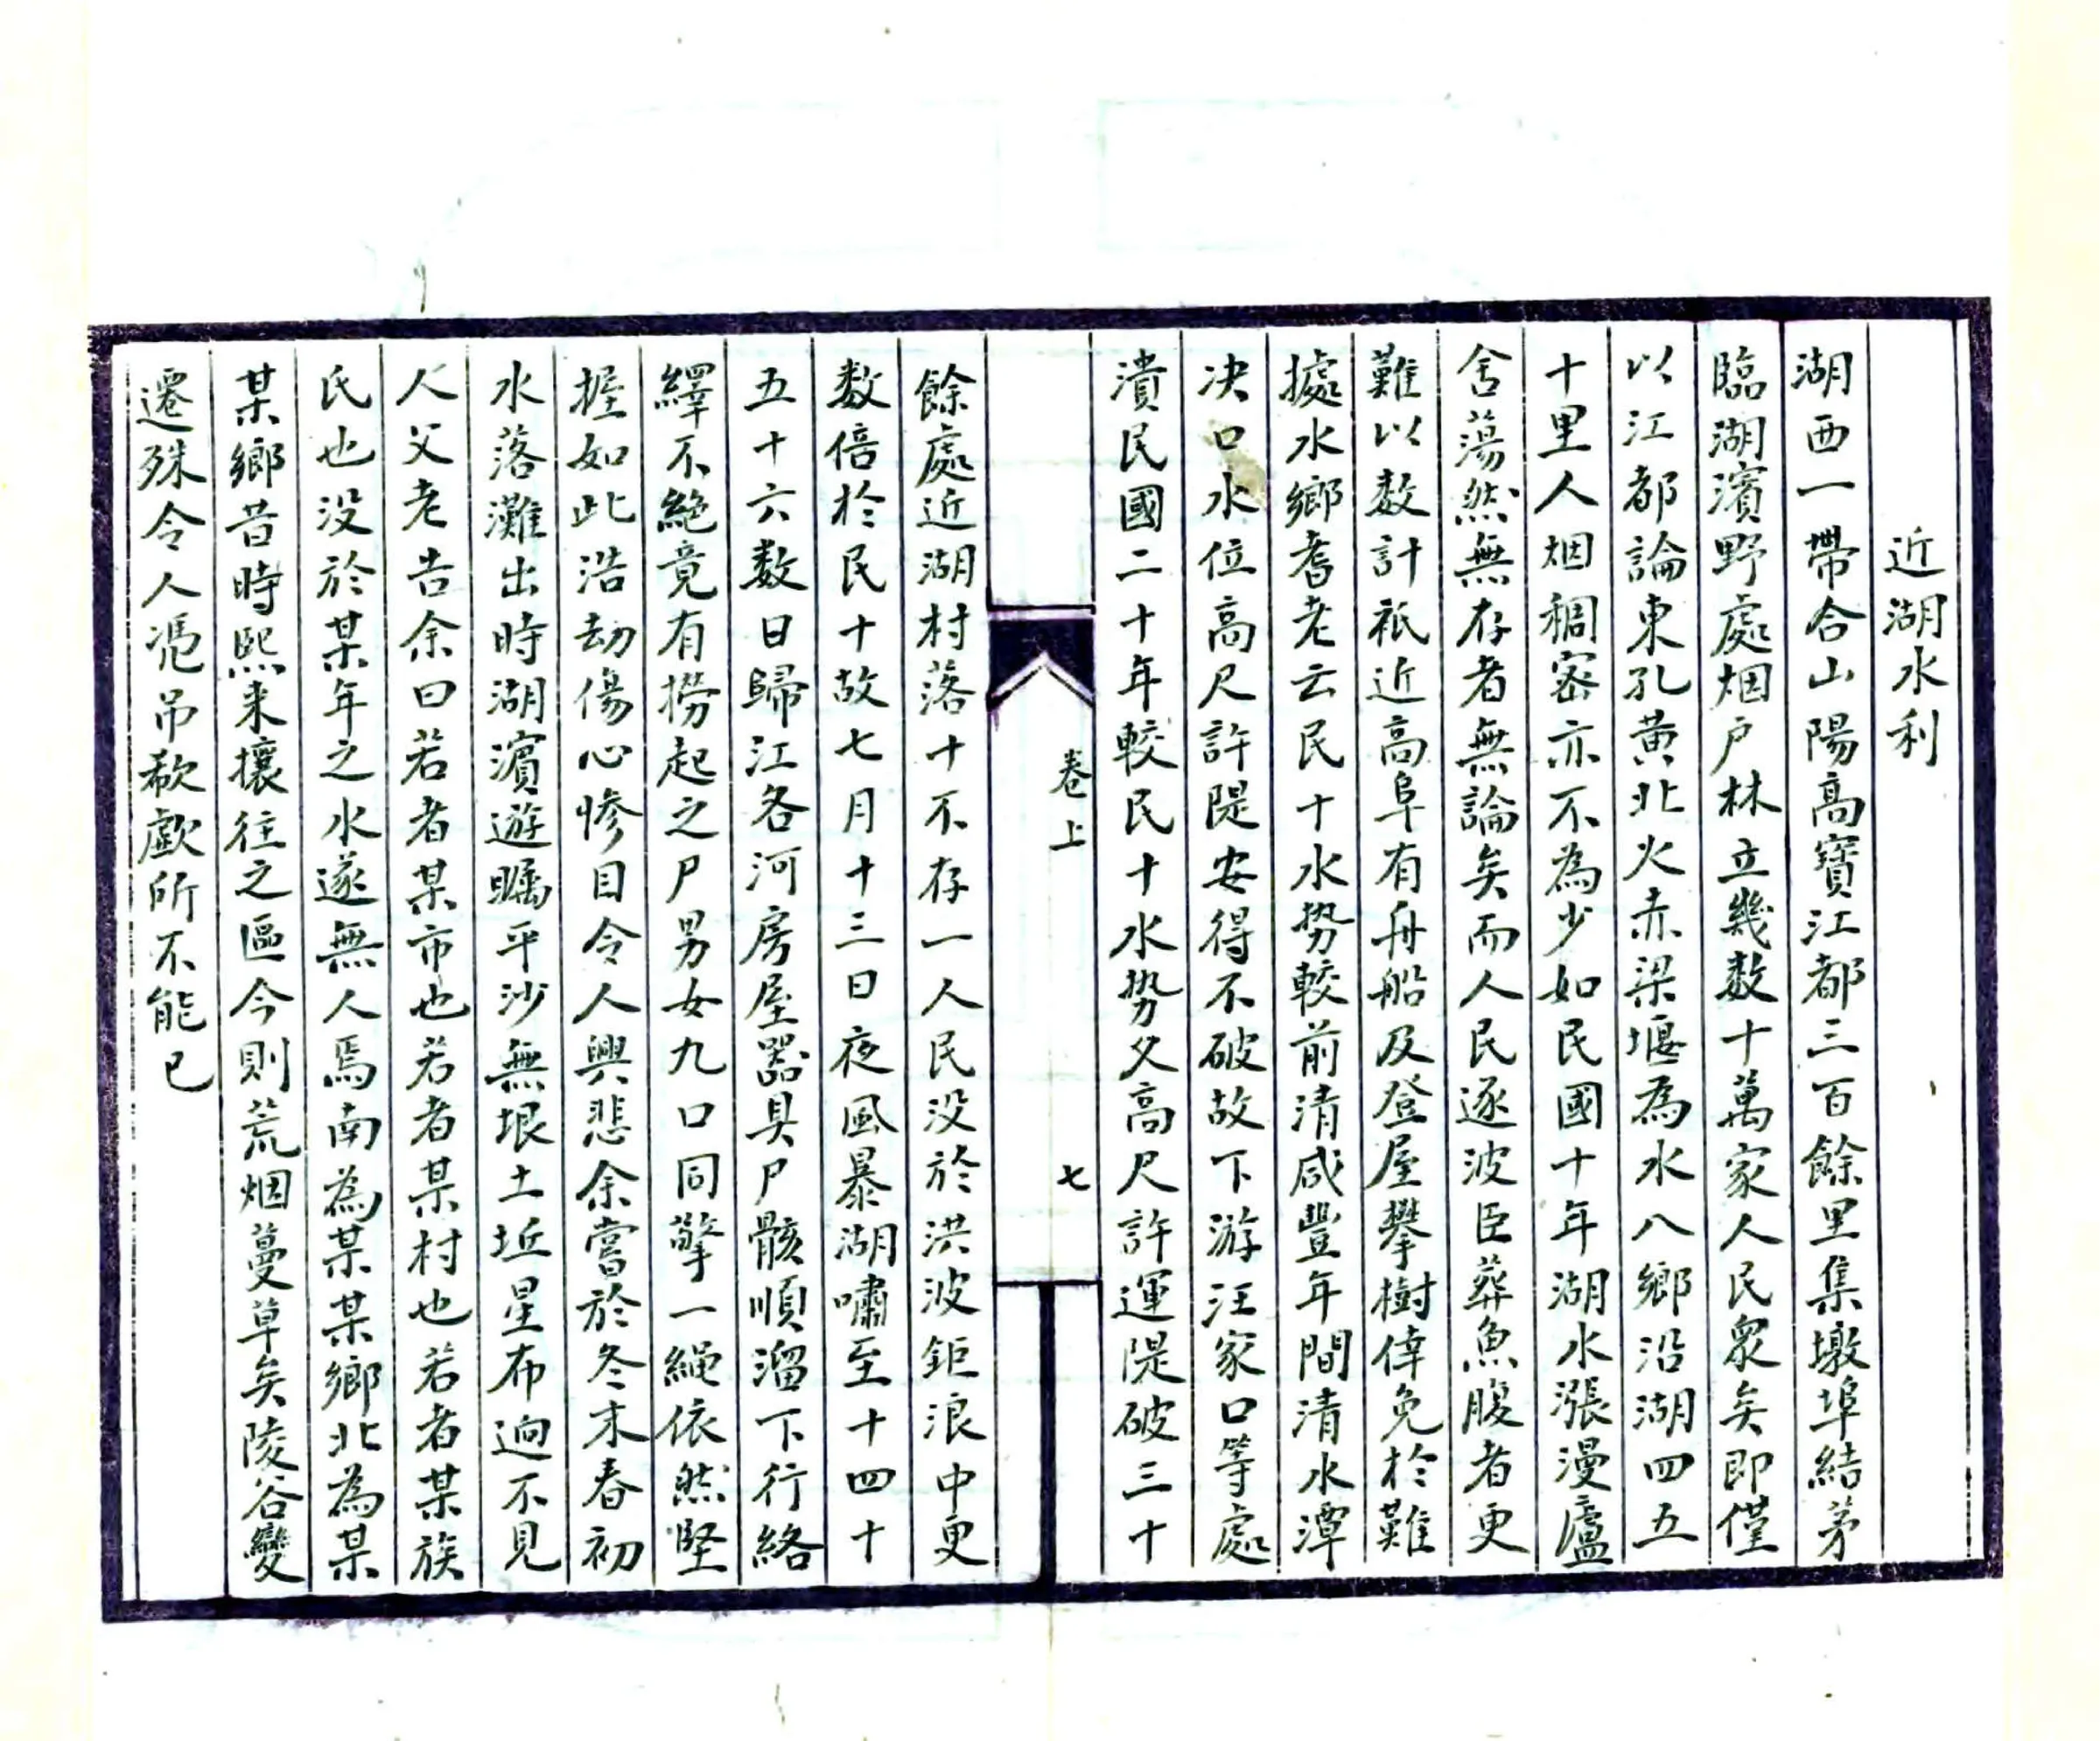 近湖水利
湖西一帶合山陽高寶江都三百餘里集墩埠結茅
臨湖濱野處烟户林立幾数十萬家人民衆矣即僅
以江都論東孔黄北火赤梁堰為水八鄉沿湖四五
十里人烟稠密亦不為少如民國十年湖水漲漫廬
舍蕩然無存者無論矣而人民逐波臣葬魚腹者更
難以数計祇近高阜有舟船及登屋攀樹倖免於難
據水鄉耆老云民十水势較前清咸豐年間清水潭
决口水位高尺許隄安得不破故下游汪家口等處
潰民國二十年較民十水势又高尺許運隄破三十
卷上
七
餘處近湖村落十不存一人民没於洪波鉅浪中更
数倍於民十故七月十三日夜風暴湖嘯至十四十
五十六数日歸江各河房屋器具尸骸順溜下行絡
繹不絶竟有撈起之尸男女九口同擎一繩依然堅
握如此浩劫傷心惨目令人興悲余嘗於冬末春初
水落灘出時湖濱遊矚平沙無垠土坵星布逈不見
人父老告余曰若者某市也若者某村也若者某族
氏也没於某年之水遂無人焉南為某某鄉北為某
某鄉昔時熙来攘往之區今則荒烟蔓草矣陵谷變
遷殊令人凭吊欷歔所不能已